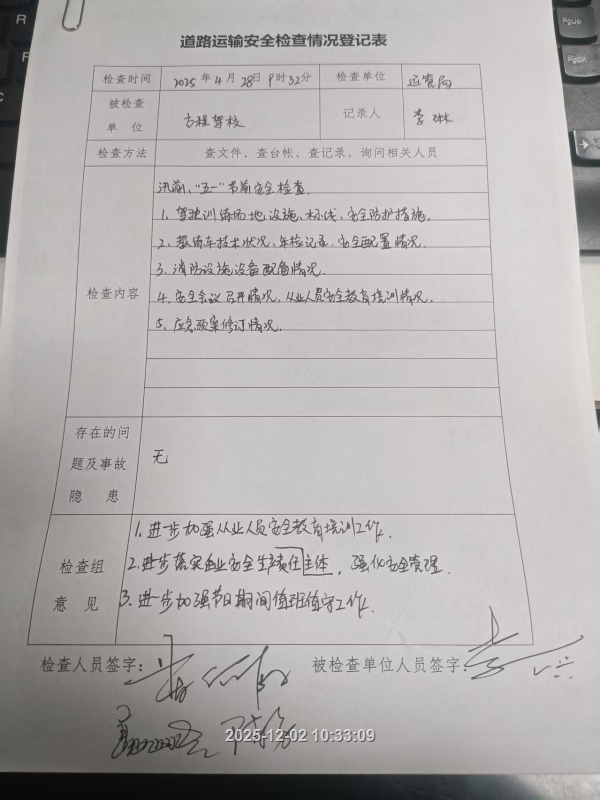 道路运输安全检查情况登记表
检查时间 2025年4月28日9时32分 检查单位 运管局
被检查单位 方程驾校 记录人 李琳
检查方法 查文件、查台帐、查记录、询问相关人员
检查内容
汛前、“五一”节前安全检查
1、驾驶训练场地设施、标线、安全防护措施.
2、教练车技术状况、年检记录、安全配置情况.
3、消防设施设备配备情况.
4、安全会议召开情况、从业人员安全教育培训情况.
5、应急预案修订情况.
存在的问题及事故隐患
无
检查组意见
1.进步加强从业人员安全教育培训工作.
2.进步落实企业安全生产责任主体，强化安全管理.
3.进步加强节日期间值班值守工作.
检查人员签字： 被检查单位人员签字：
2025-12-02 10:33:09